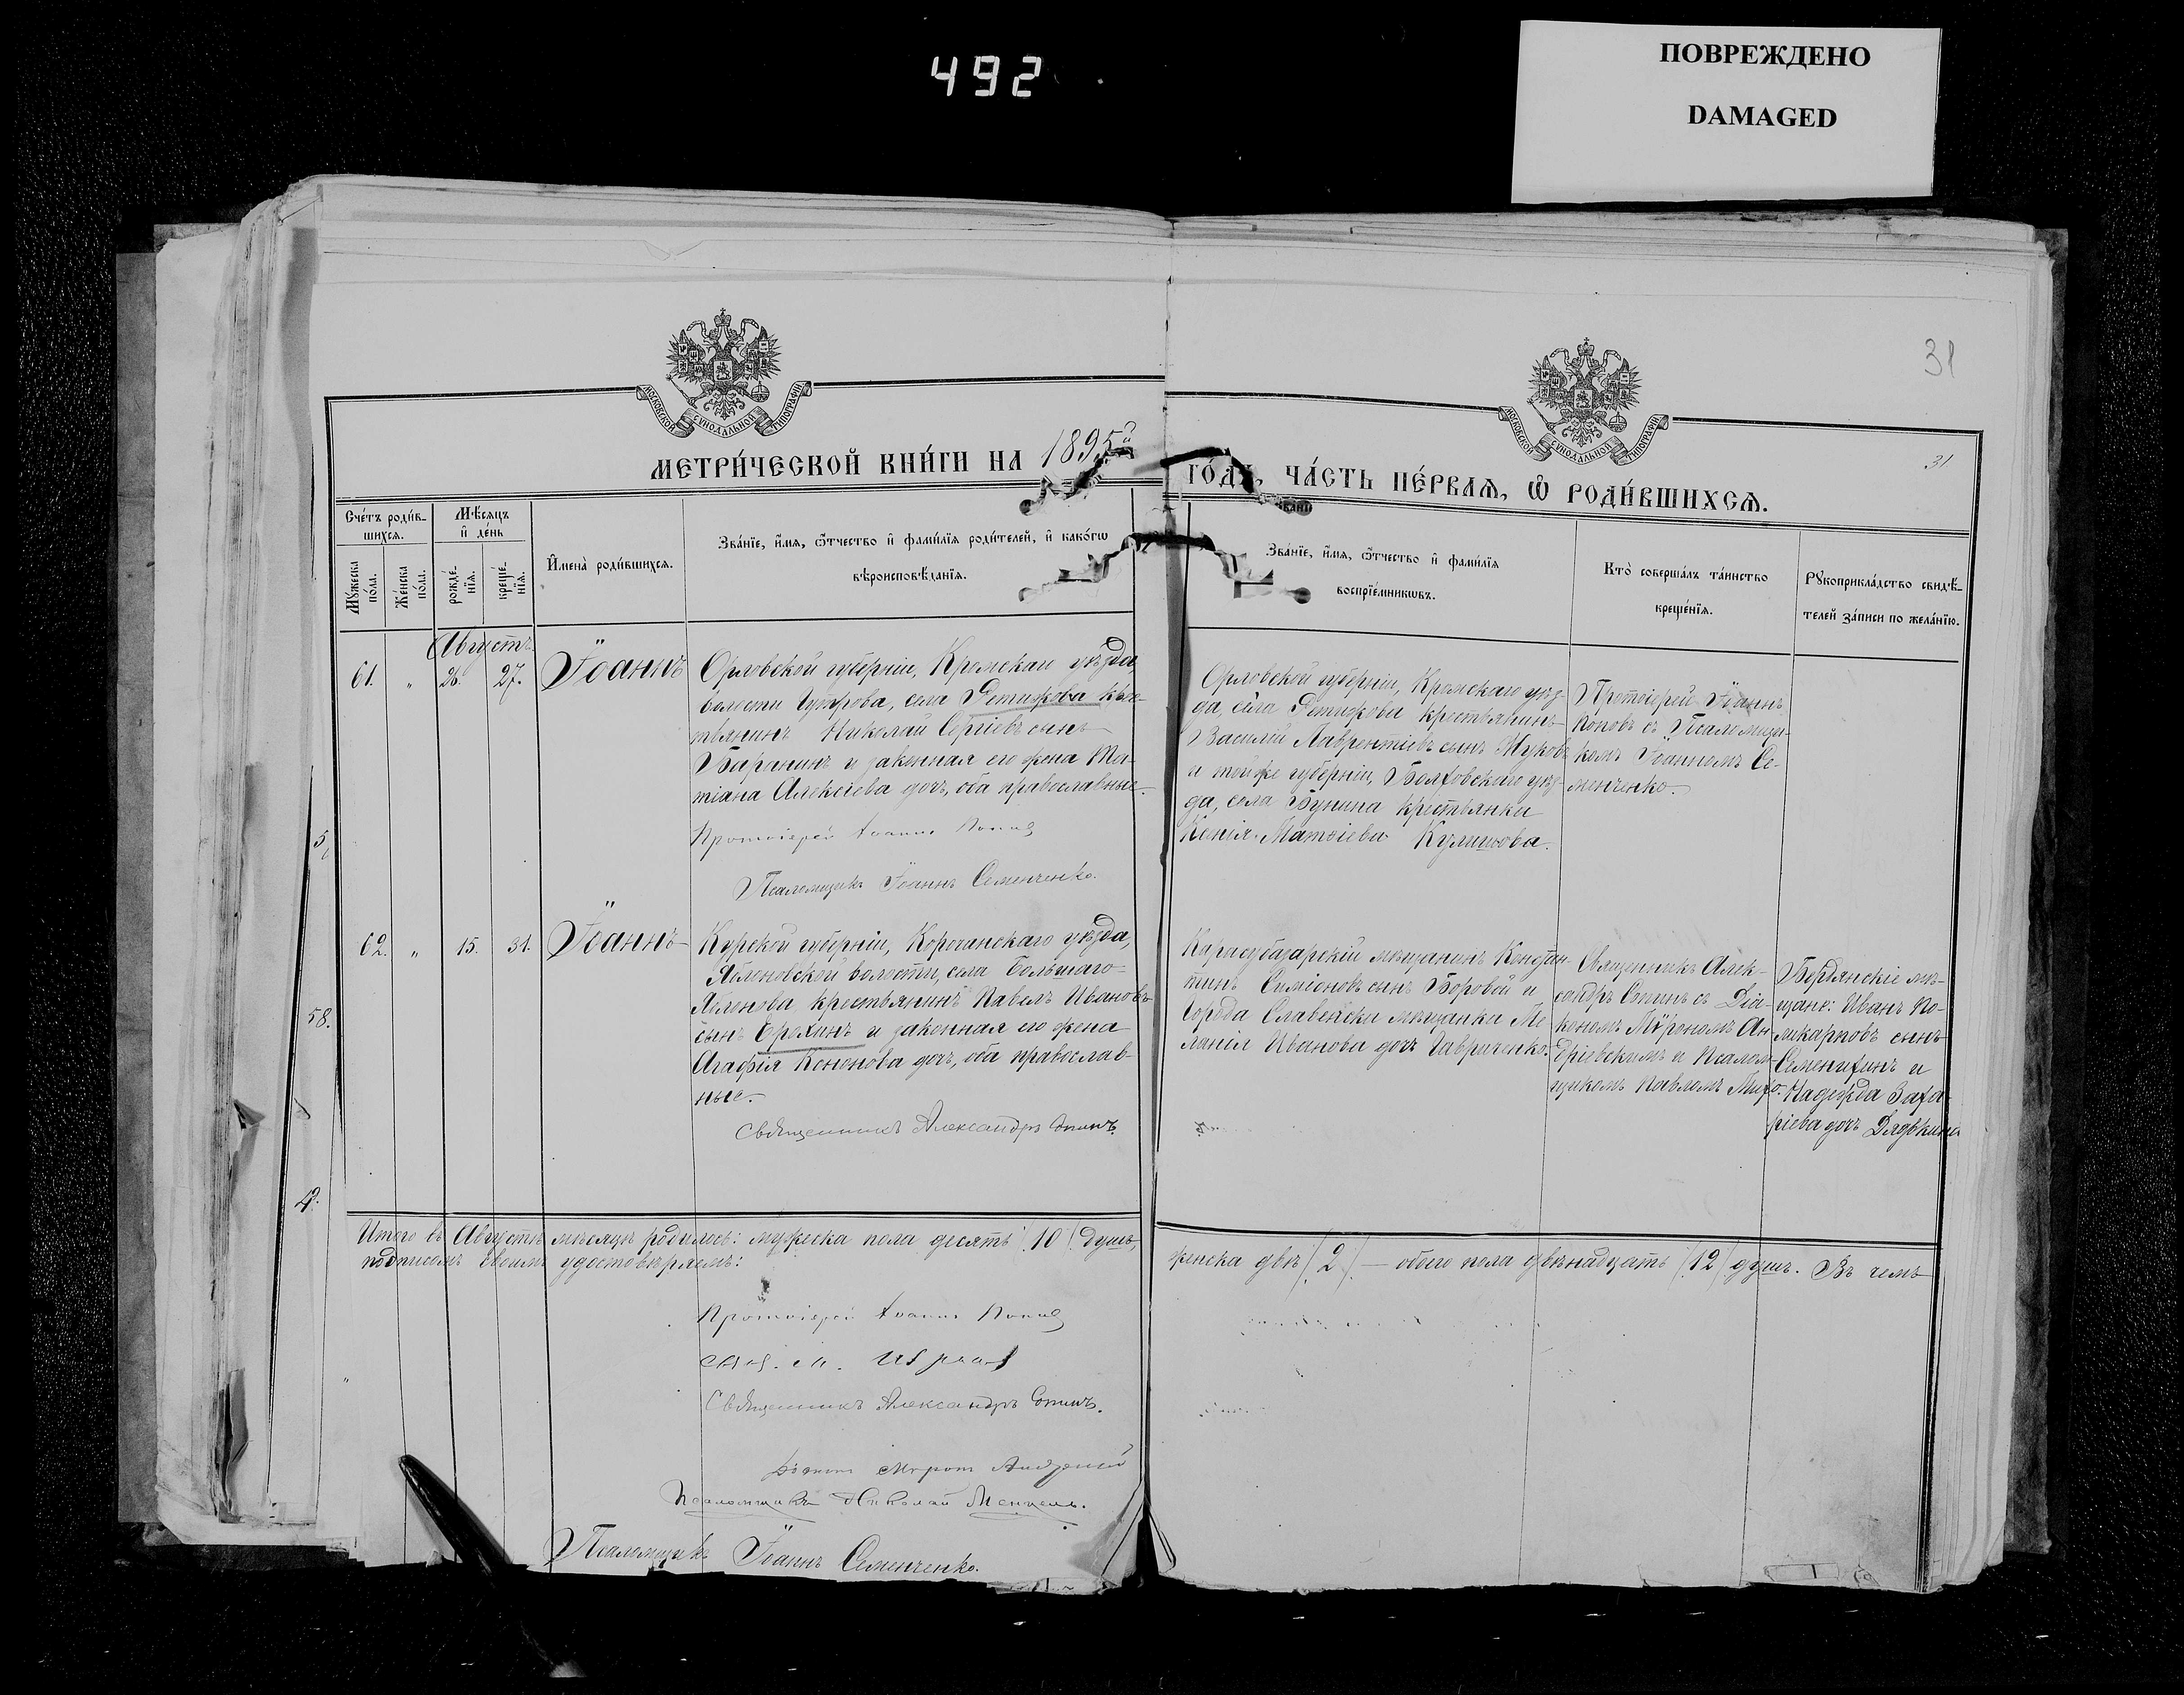 492
ПОВРЕЖДЕНО
DAMAGED
31
МОСКОВСКОЙ СУНОДАЛЬНОЙ ТИПОГРАФІИ
МОСКОВСКОЙ СУНОДАЛЬНОЙ ТИПОГРАФІИ
МЕТРИ́ЧЕСКОЙ КНИ́ГИ НА 1895й
ГО́ДЪ, ЧА́СТЬ ПЕ́РВАѦ, Ѡ҆ РОДИ́ВШИХСѦ.
31
Сче́тъ роди́в-
шихся.
Мѣ́сяцъ
и҆ де́нь
И҆мена̀ роди́вшихся.
Зва́нїе, и҆́мя, ѻ҆́тчество и҆ фами́лїя роди́телей, и҆ како́гѡ
вѣроисповѣ́данїя.
Му́жеска
по́ла.
Же́нска
по́ла.
рожде́-
нїя.
креще́-
нїя.
Зва́нїе, и҆́мя, ѻ҆́тчество и҆ фами́лїя
воспрїе́мникѡвъ.
Кто̀ соверша́лъ та́инство
креще́нїя.
Рꙋкоприкла́дство свидѣ́-
телей за́писи по жела́нїю.
Августъ
61. " 26. 27. Іоаннъ
Орловской губерніи, Кромскаго уѣзда,
волости Гутрова, села Ретижова крес-
тьянинъ Николай Сергіевъ сынъ
Баранинъ и законная его жена Та-
тіана Алексіева дочь, оба православные.
Протоіерей Іоаннъ Поповъ
Псаломщикъ Іоаннъ Семенченко.
Орловской губерніи, Кромскаго уѣз-
да, села Ретижова крестьянинъ
Василій Лаврентіевъ сынъ Жуковъ
и тойже губерніи, Болховскаго уѣз-
да, села Бунина крестьянки
Ксенія Матѳіева Кулишова.
Протоіерей Іоаннъ
Поповъ съ Псаломщи-
комъ Іоанномъ Се-
менченко.
5
62. " 15. 31. Іоаннъ
Курской губерніи, Корочанскаго уѣзда,
Яблоновской волости, села Большаго-
Яблонова крестьянинъ Павелъ Ивановъ
сынъ Ерохинъ и законная его жена
Агафія Кононова дочь, оба православ-
ные.
Священникъ Александръ Сопинъ.
Карасубазарскій мѣщанинъ Констан-
тинъ Симіоновъ сынъ Боровой и
города Славянска мѣщанка Ме-
ланія Иванова дочь Гавриченко.
Священникъ Алек-
сандръ Сопинъ съ Діа-
кономъ Мѵрономъ Ан-
дріевскимъ и Псалом-
щикомъ Павломъ Михо.
Бердянскіе мѣ-
щане: Иванъ По-
ликарповъ сынъ
Семенихинъ и
Надежда Заха-
ріева дочь Дядькина
58.
Итого въ Августѣ мѣсяцѣ родилось: мужеска пола десять /10/ душъ,
женска двѣ /2/ — обоего пола двѣнадцать /12/ душъ. Въ чемъ
подписомъ своимъ удостовѣряемъ:
Протоіерей Іоаннъ Поповъ
Священникъ Александръ Сопинъ.
Діаконъ Мѵронъ Андріевскій
Псаломщикъ Николай Менцель.
Псаломщикъ Іоаннъ Семенченко.